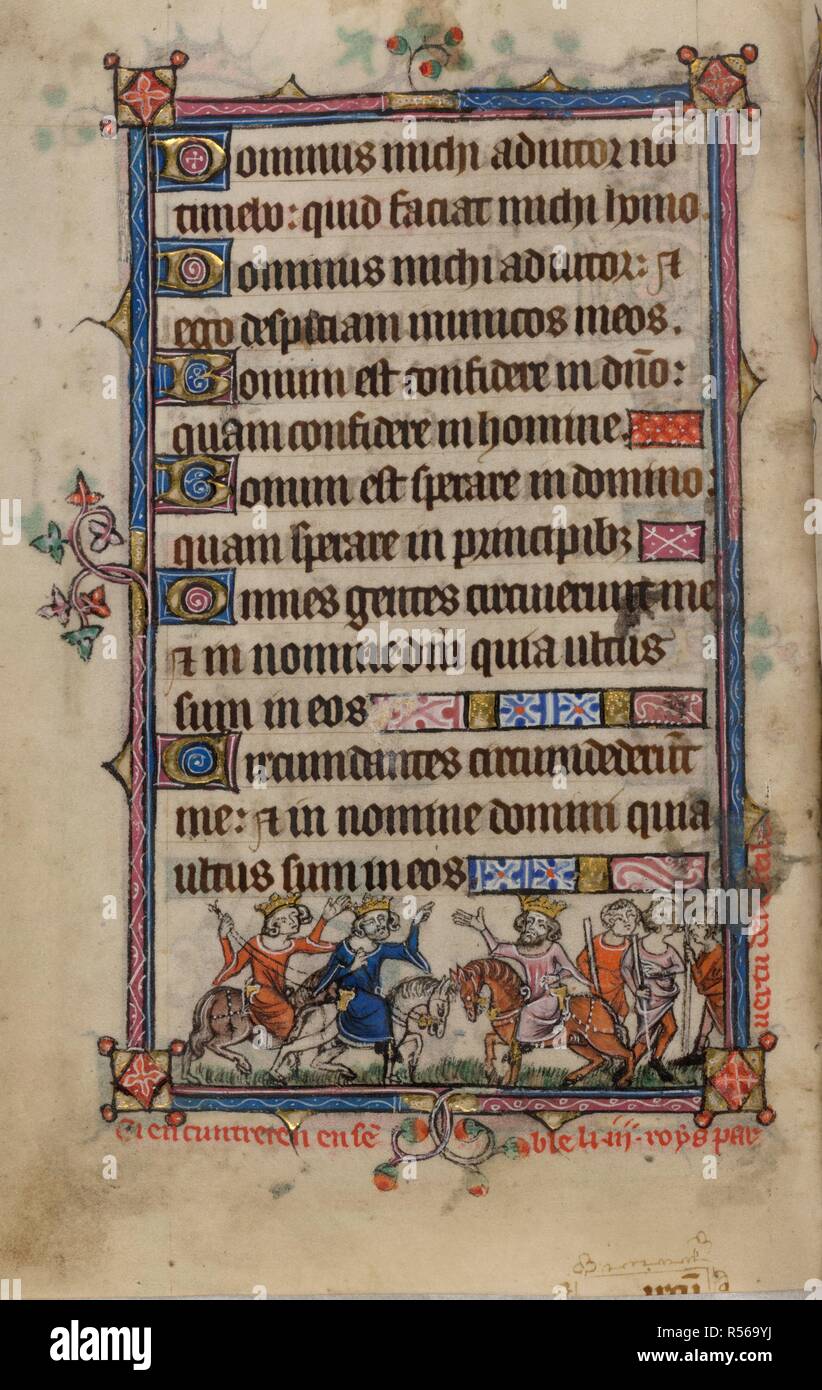 Dominus michi adiutor nō
timebo: quid faciat michi homo.
Dominus michi adiutor: et
ego despiciam inimicos meos.
Bonum est confidere in dño:
quam confidere in homine.
Bonum est sperare in domino:
quam sperare in principibꝫ
Omnes gentes circuierunt me
et in nomine dñi quia ultus
sum in eos
Circumdantes circumdederūt
me: et in nomine domini quia
ultus sum in eos
Ci encuntrerent ensē ble li .iii. roys par
vertu de
alamy
Image ID: R569YJ
www.alamy.com